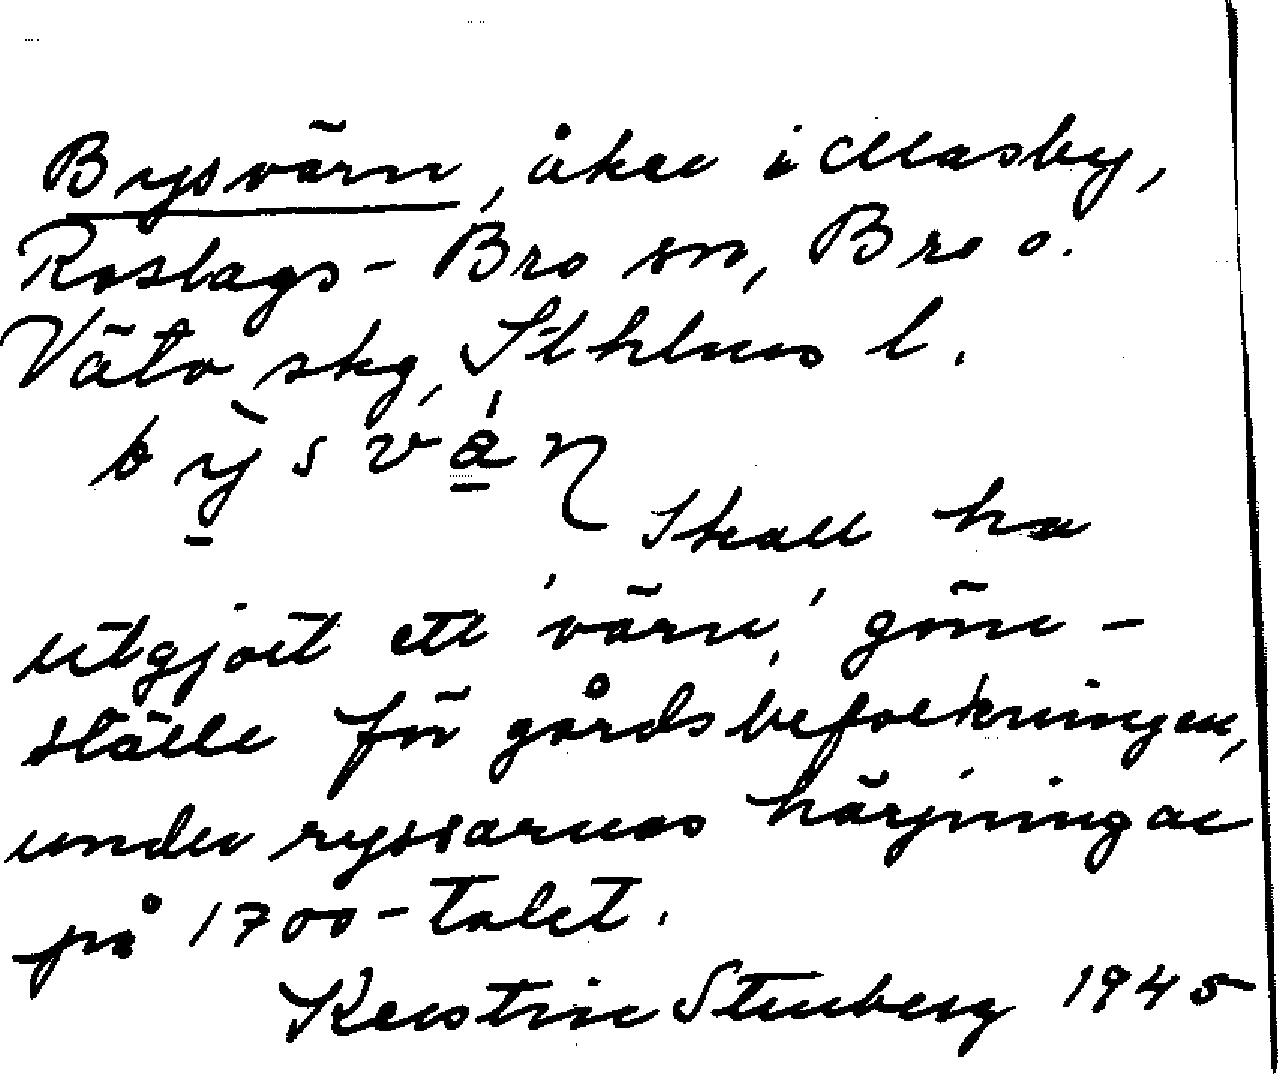 Bysvärn, åker i Masby,
Roslags-Bro sn, Bro o.
Vätö skg, Sthlms l.
bỳsvá̱n
Skall ha
utgjort ett 'värn', göm-
ställe för gårdsbefolkningen,
under ryssarnas härjningar
på 1700-talet.
Kerstin Stenberg 1945